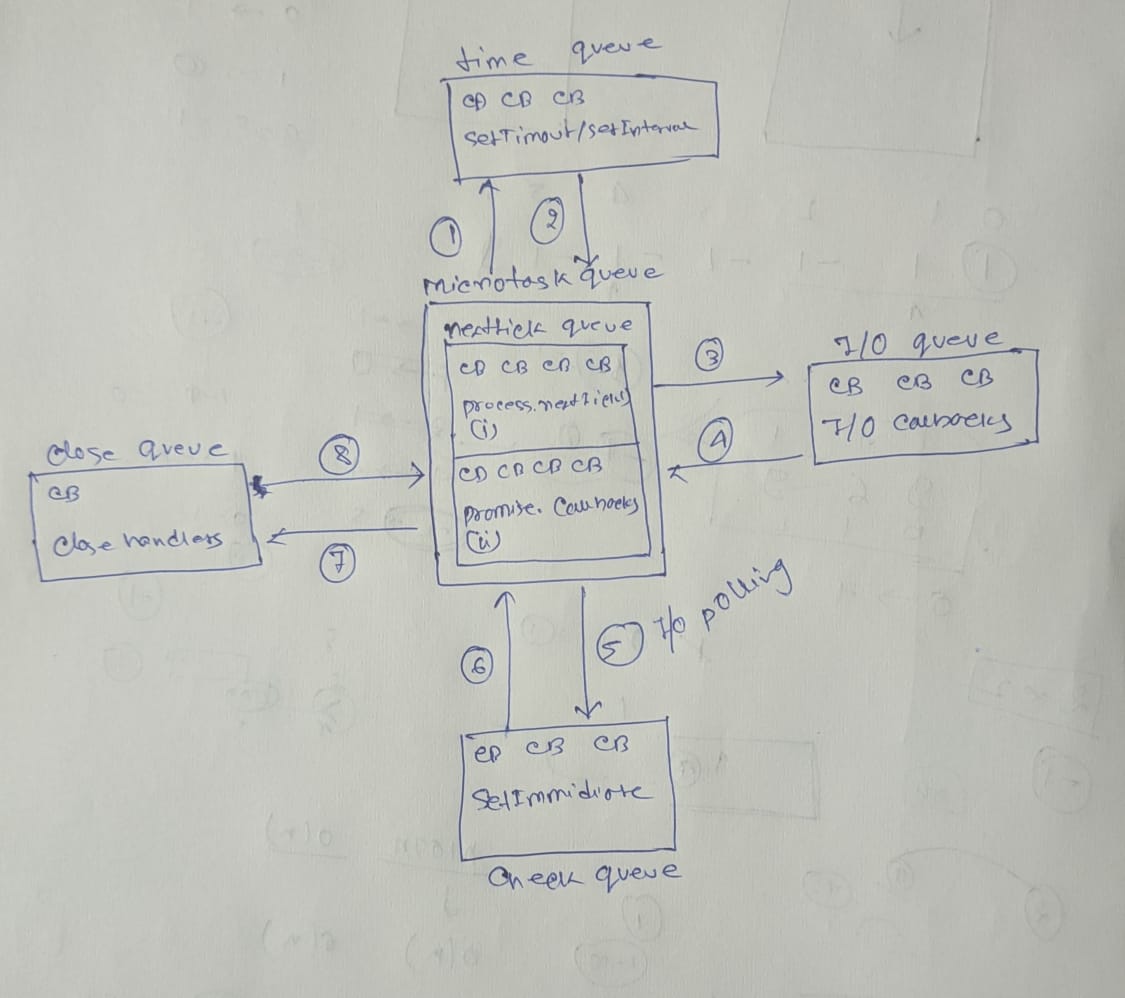 time queue
CB CB CB
setTimout/setInterval
1
2
Microtask queue
nexttick queue
CB CB CB CB
process.nextTick()
(i)
CB CB CB CB
promise. Callbacks
(ii)
3
I/O queue
CB CB CB
I/O callbacks
4
close queue
CB
close handlers
8
7
5 I/O polling
6
CB CB CB
SetImmidiate
Check queue